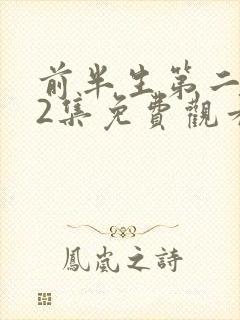 前半生第二
2集免費觀看
鳳嵐之詩